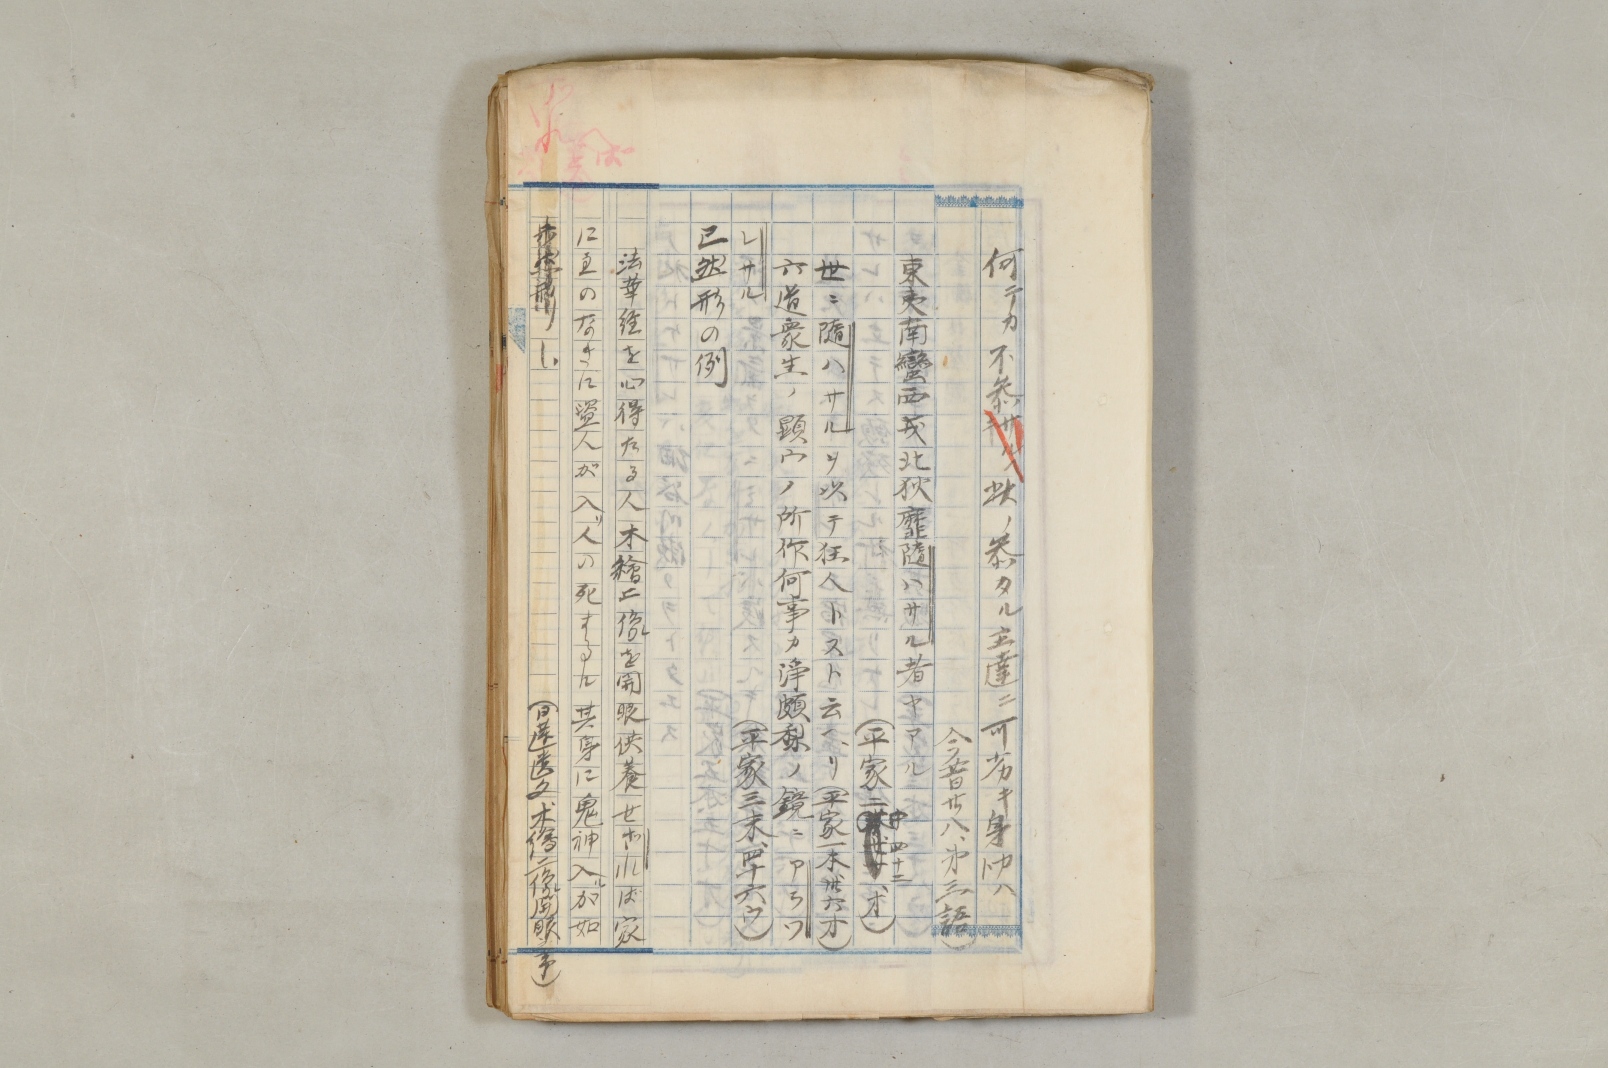 何テカ不参サル 此ノ参タル主達ニ可劣キ身カハ
今昔廿八、第三語)
東夷南蠻西戎北狄靡隨ハサル者ヤアル
(平家二中四十二、オ)
世ニ隨ハサルヲ以テ狂人トスト云ヘリ(平家一本卅六オ)
六道衆生ノ顕ウノ所作何事カ淨頗梨ノ鏡ニアラワ
レサル
(平家三末、四十六ウ)
已然形の例
法華経を心得たる人木繪二像を開眼供養せざれば家
に主のなきに盗人が入、人の死するに其身に鬼神入が如
し、
(日蓮遺文 木繪二像開眼事)